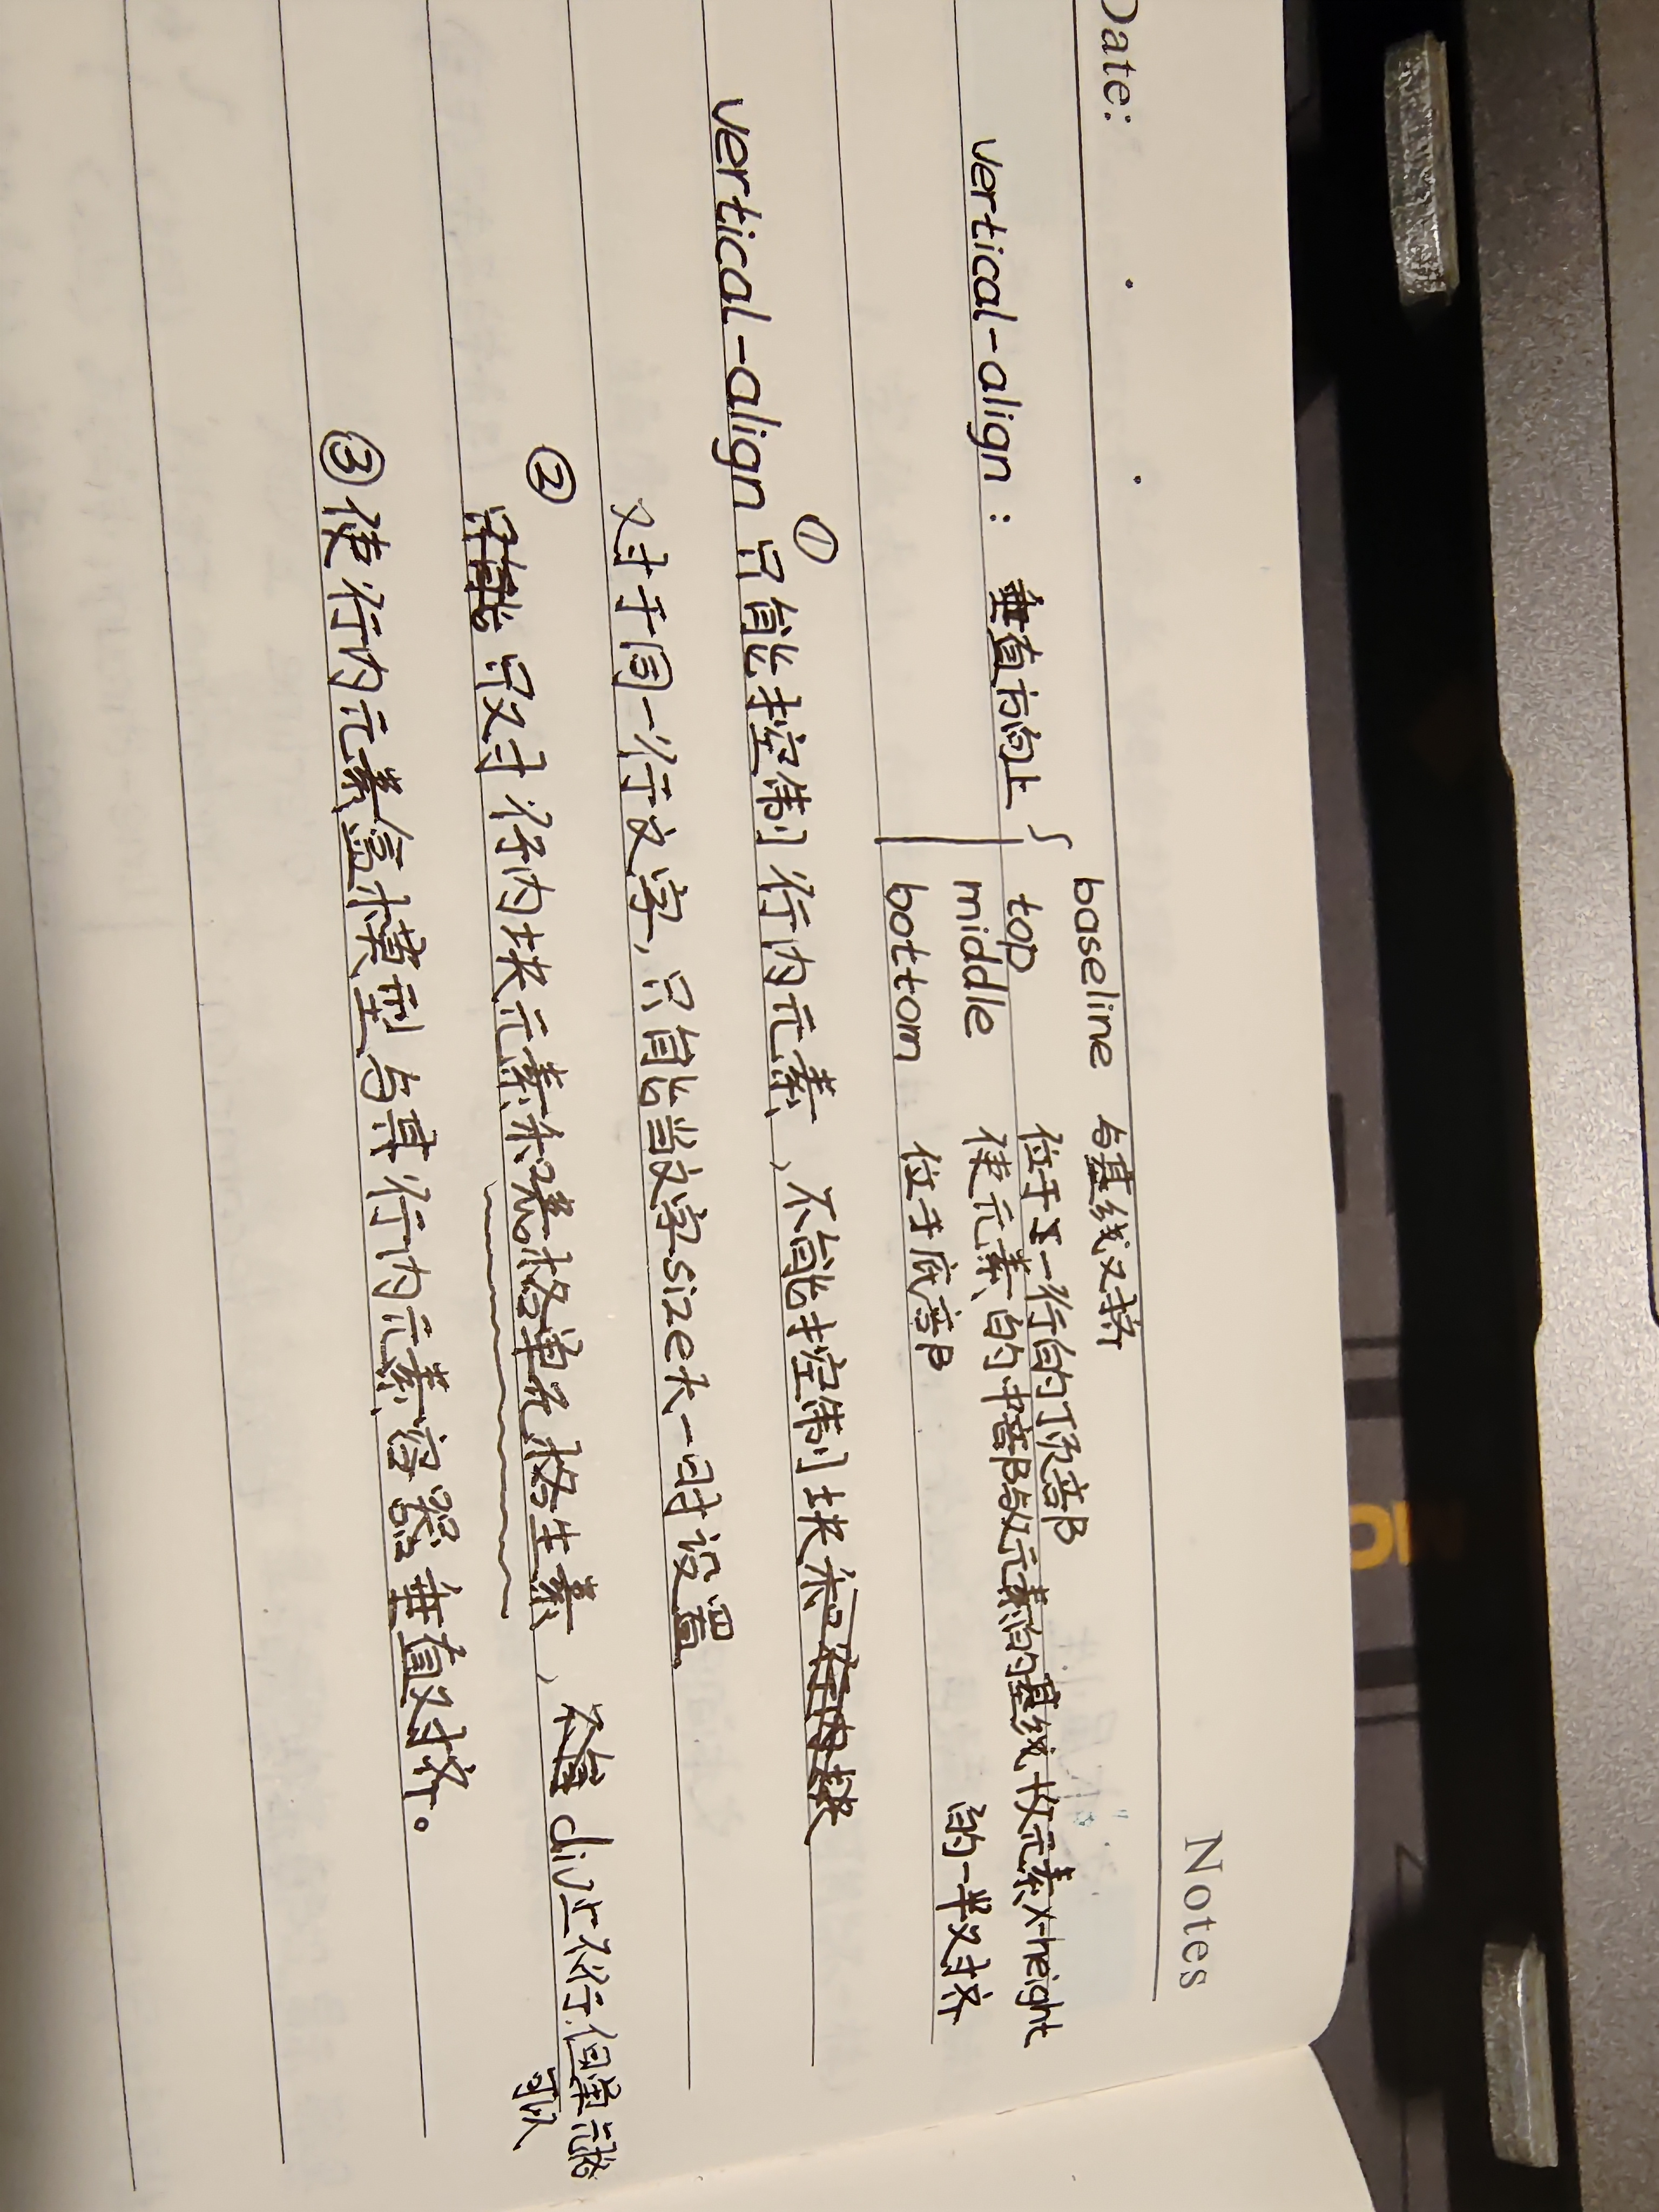 Notes
Date:
baseline 与基线对挤
vertical-align : 垂直方向上
top 位于一行的顶部
middle 使元素的中部与父元素的基线+父元素x-height
的一半对挤
bottom 位于底部
①
vertical-align 只能控制行内元素,不能控制块
对于同一行文字,只能当文字size大一时设置
②
只对行内块元素和表格单元格生素, div上不行,但单元格
可以
③使行内元素盒模型与其行内元素容器垂直对挤。